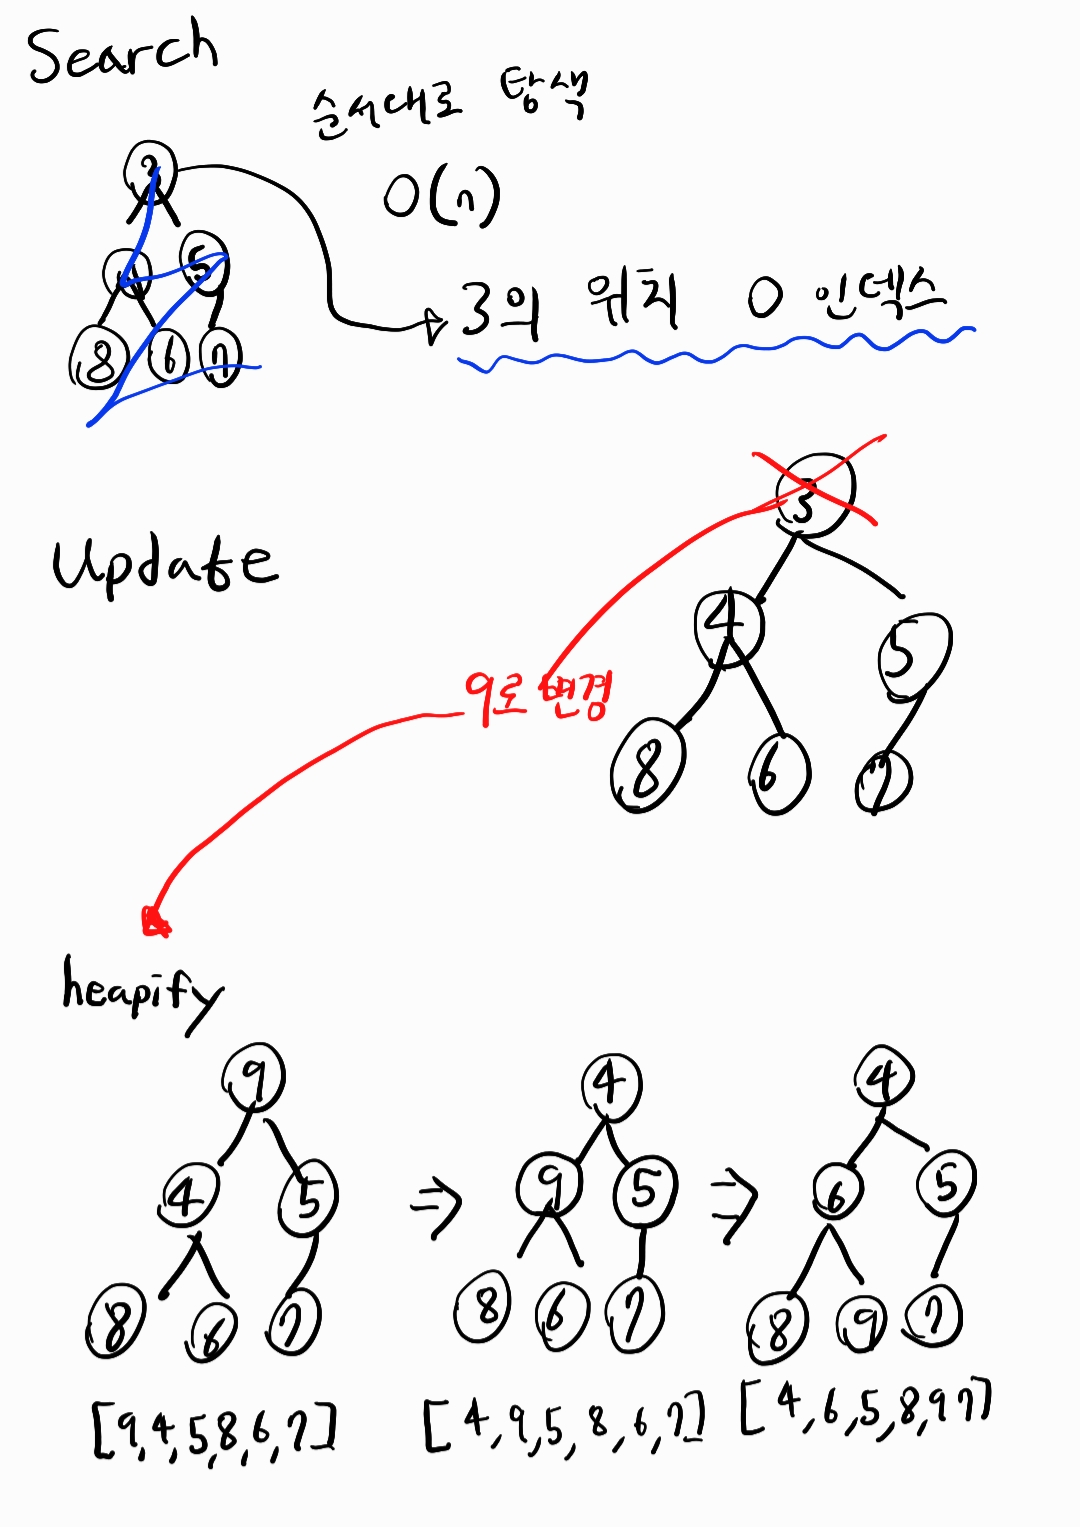 Search
순서대로 탐색
O(n)
3
4 5
8 6 7
3의 위치 0 인덱스
Update
3
4 5
8 6 7
9로 변경
heapify
9
4 5
8 6 7
[9,4,5,8,6,7]
⇒
4
9 5
8 6 7
[4,9,5,8,6,7]
⇒
4
6 5
8 9 7
[4,6,5,8,9 7]